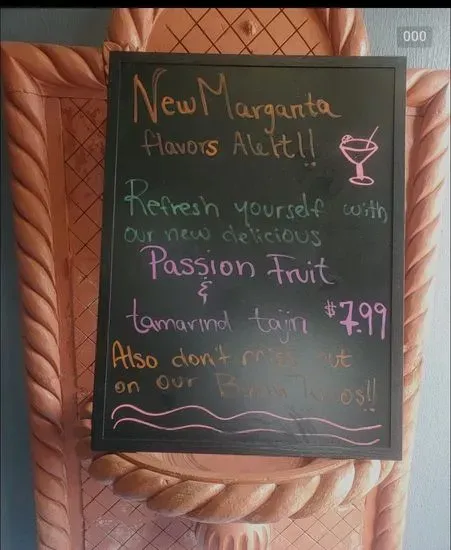 000
New Margarita
flavors Alert!!
Refresh yourself with
our new delicious
Passion Fruit
&
tamarind tajin $7.99
Also don't miss out
on our Tacos!!